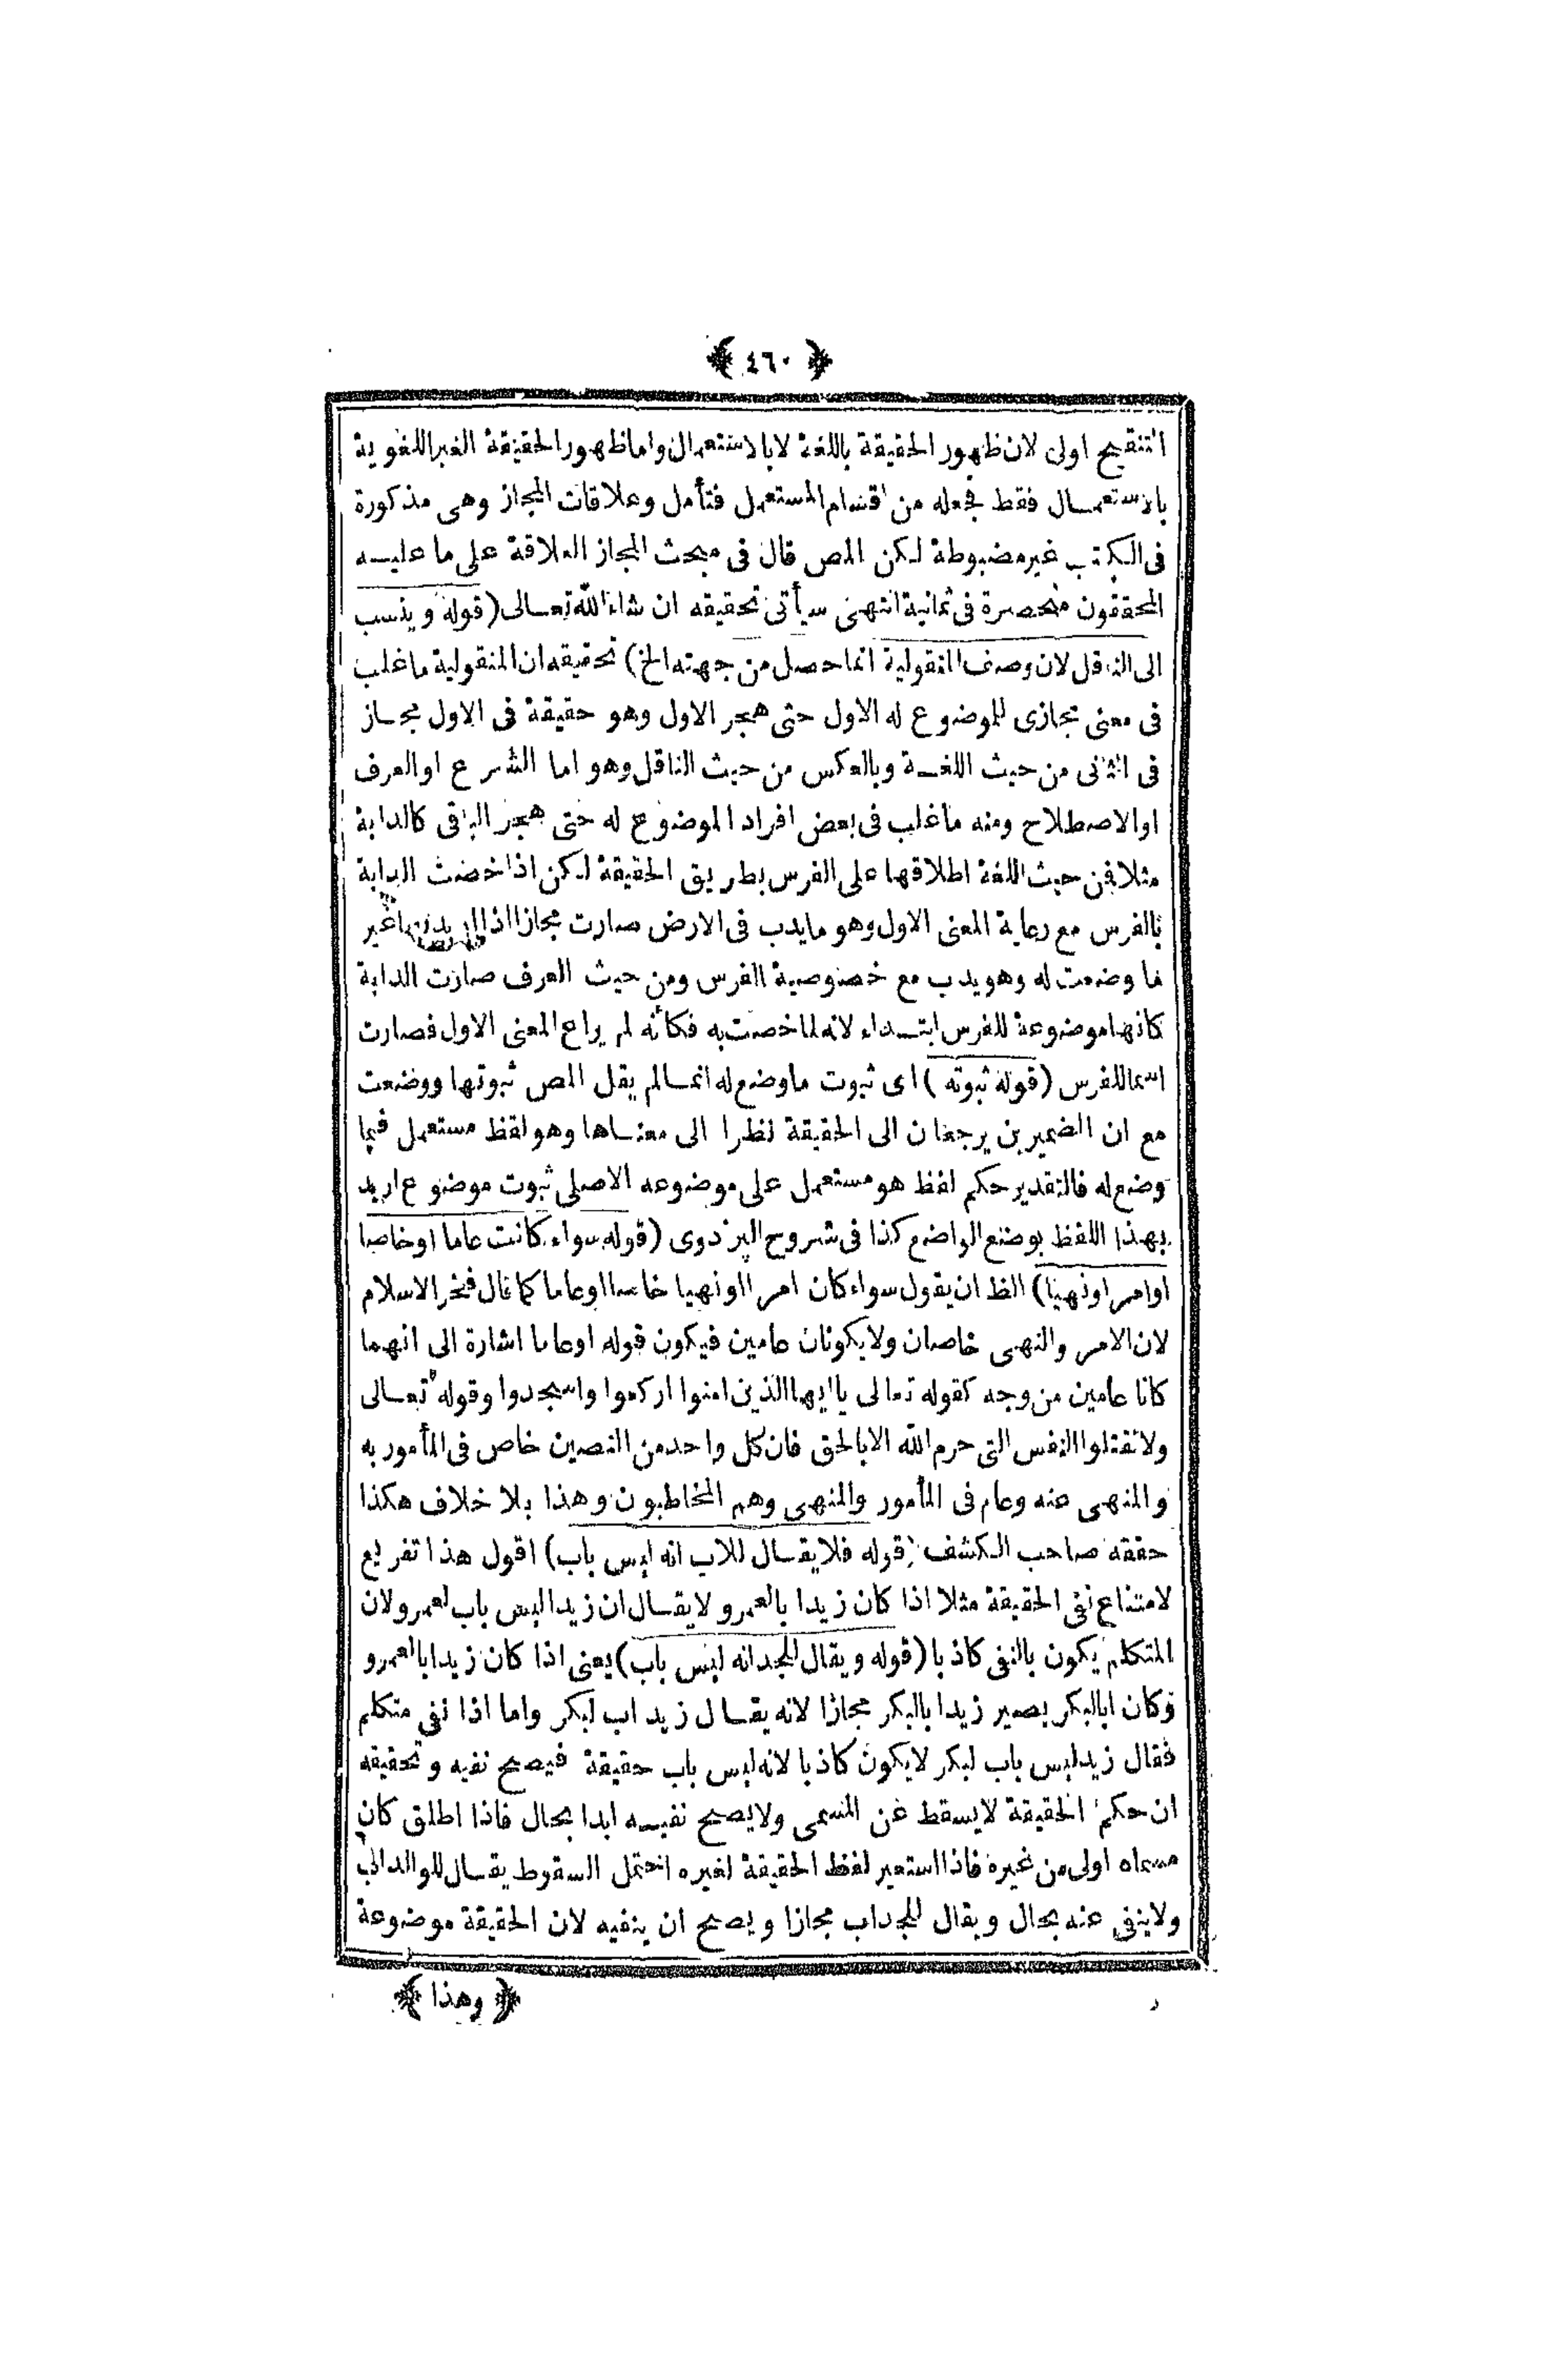 ﴿ ٤٦٠ ﴾
التنقيح اولى لان ظهور الحقيقة باللغة لا بالاستعمال واما ظهور الحقيقة الغير اللغوية
بالاستعمال فقط فجعله من اقسام المستعمل فتأمل وعلاقات المجاز وهى مذكورة
فى الكتب غير مضبوطة لكن المص قال فى مبحث المجاز العلاقة على ما عليه
المحققون منحصرة فى ثمانية انتهى سيأتى تحقيقه ان شاء الله تعالى (قوله وينسب
الى الناقل لان وصف المنقولية انما حصل من جهته الخ) تحقيقه ان المنقولية ما غلب
فى معنى مجازى للموضوع له الاول حتى هجر الاول وهو حقيقة فى الاول مجاز
فى الثانى من حيث اللغة وبالعكس من حيث الناقل وهو اما الشرع او العرف
او الاصطلاح ومنه ما غلب فى بعض افراد الموضوع له حتى هجر الباقى كالدابة
مثلا فمن حيث اللغة اطلاقها على الفرس بطريق الحقيقة لكن اذا خصت الدابة
بالفرس مع رعاية المعنى الاول وهو ما يدب فى الارض صارت مجازا اذا اريد بها غير
ما وضعت له وهو يدب مع خصوصية الفرس ومن حيث العرف صارت الدابة
كانها موضوعة للفرس ابتداء لانه لما خصت به فكأنه لم يراع المعنى الاول فصارت
اسما للفرس (قوله ثبوته) اى ثبوت ما وضع له انما لم يقل المص ثبوتها ووضعت
مع ان الضميرين يرجعان الى الحقيقة نظرا الى معناها وهو لفظ مستعمل فيما
وضع له فالتقدير حكم لفظ هو مستعمل على موضوعه الاصلى ثبوت موضوع اريد
بهذا اللفظ بوضع الواضع كذا فى شروح البزدوى (قوله سواء كانت عاما او خاصا
او امر او نهيا) الظ ان يقول سواء كان امرا او نهيا خاصا او عاما كما قال فخر الاسلام
لان الامر والنهى خاصان ولا يكونان عامين فيكون قوله او عاما اشارة الى انهما
كانا عامين من وجه كقوله تعالى يا ايها الذين امنوا اركعوا واسجدوا وقوله تعالى
ولا تقتلوا النفس التى حرم الله الا بالحق فان كل واحد من النصين خاص فى المأمور به
والمنهى عنه وعام فى المأمور والمنهى وهم المخاطبون وهذا بلا خلاف هكذا
حققه صاحب الكشف (قوله فلا يقال للاب انه ليس باب) اقول هذا تفريع
لامتناع نفى الحقيقة مثلا اذا كان زيدا بالعمرو لا يقال ان زيدا ليس باب لعمرو لان
المتكلم يكون بالنفى كاذبا (قوله ويقال للجد انه ليس باب) يعنى اذا كان زيدا بالعمرو
وكان ابا لبكر يصير زيدا بالبكر مجازا لانه يقال زيد اب لبكر واما اذا نفى متكلم
فقال زيد ليس باب لبكر لا يكون كاذبا لانه ليس باب حقيقة فيصح نفيه وتحقيقه
ان حكم الحقيقة لا يسقط عن المسمى ولا يصح نفيه ابدا بحال فاذا اطلق كان
مسماه اولى من غيره فاذا استعير لفظ الحقيقة لغيره احتمل السقوط يقال للوالد اب
ولا ينفى عنه بحال ويقال للجد اب مجازا ويصح ان ينفيه لان الحقيقة موضوعة
﴿ وهذا ﴾